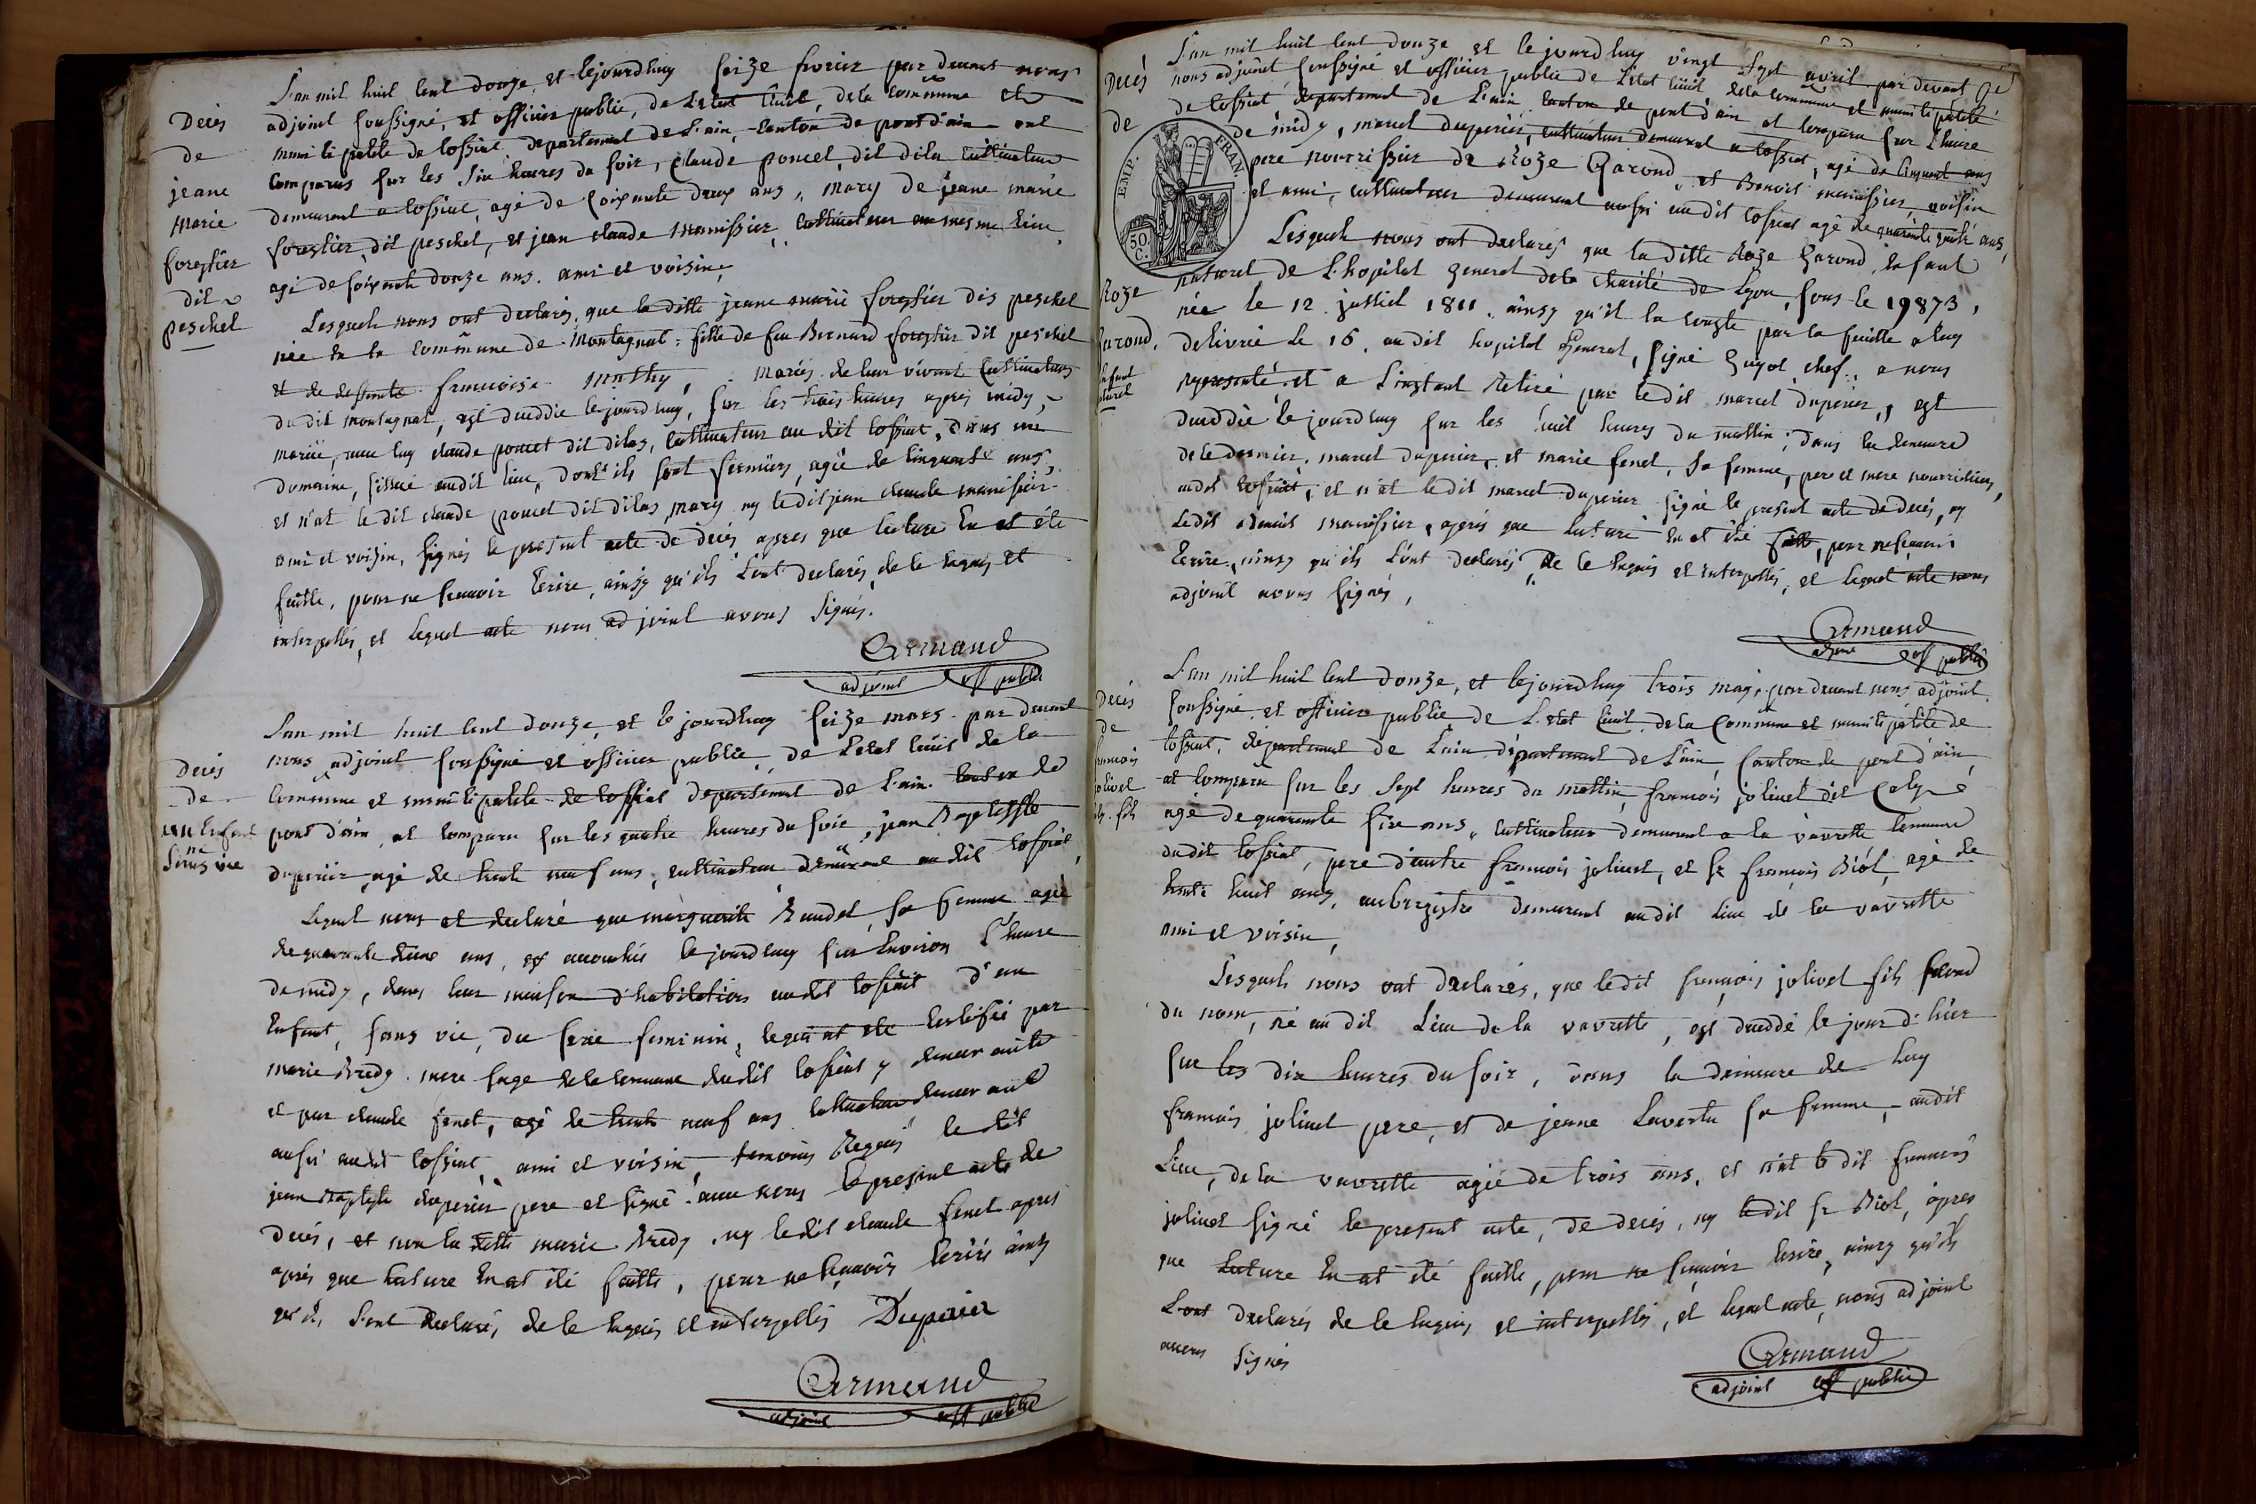 Decès
de
jeane
Marie
forestier
dit
peschet
L'an mil huit cent douze, et lejourdhuy seize fevrier par devant nous
adjoint soussigné, et officier public, de L'etat Civil, dela commune et
municipalité de tossiat departement de L'ain, canton de pont d'ain ont
comparus sur les six heures du soir, Claude poncet dit dilas cultivateur
demeurant a tossiat, agé de soixante deux ans, mary de jeane marie
forestier dit peschet, et jean claude manissier, cultivateur au mesme lieu,
agé de soixante douze ans. ami et voisin,
Lesquels nous ont declarés, que la ditte jeane marie forestier dis peschet
née en la commune de Montagnat, fille de feu Bernard forestier dit peschet
et de deffunte francoise Mathy, mariés de leur vivant Cultivateurs
du dit montagnat, est dueddée lejourdhuy, sur les trois heures après midy,
mariée, avec luy claude poncet dit dilas, cultivateur au dit tossiat, dans un
domaine, sittué audit lieu, dont ils sont fermiers, agée de cinquante ans,
et n'at le dit claude poncet dit dilas, mary ny le dit jean claude manissier
ami et voisin, signés le present acte de decès apres que lecture en at été
faitte, pour ne scavoir Ecrire, ainsy qu'ils L'ont declarés, de le requis et
interpellés, et lequel acte nous adjoint avons signés.
Armand
adjoint off public
Decès
de
un Enfant
né
sans vie
L'an mil huit cent douze, et le jourdhuy seize mars par devant
nous adjoint soussigné et officier public, de L'etat Civil de la
Commune et municipalité de tossiat departement de L'ain canton de
pont d'ain, at comparu sur les quatre heures du soir, jean Baptiste
duperier, agé de trente neuf ans, cultivateur demeurant au dit tossiat,
Lequel nous at declaré que marguerite Baudet, sa femme agée
de quarante deux ans, est accouchée le jourdhuy sur Environ L'heure
de midy, dans leur maison d'habitation audit tossiat d'un
Enfant, sans vie, du sexe feminin, lequel at été certifié par
marie Bredy mere sage de la commune dudit tossiat y demeurante
et par claude fenet, agé de trente neuf ans cultivateur demeurant
aussi audit tossiat, ami et voisin, temoins Requis le dit
jean Baptiste duperier pere et signé avec nous le present acte de
decès, et non la ditte marie Bredy, ny le dit claude fenet apres
après que lecture En at été faitte, pour ne scavoir Ecrire ainsy
qu'ils, L'ont declaré, de le requis et interpellés Duperier
Armand
adjoint off public
Decès
de
Roze
Garond,
Enfant
naturel
L'an mil huit cent douze et le jourdhuy vingt sept avril par devant
nous adjoint soussigné et officier public de L'etat Civil dela commune et municipalité
de tossiat departement de L'ain canton de pont d'ain at comparu sur L'heure
de midy, marcel duperier, cultivateur demeurant a tossiat, agé de cinquant ans
pere nourrissier de Roze Garond, et Benoit manissier voisin
et ami, cultivateur demeurant aussi audit tossiat agé de quarante quatre ans,
EMP. FRAN.
50 C.
Lesquels nous ont declarés que la ditte Roze Garond, Enfant
naturel de L'hopital general dela charité de Lyon, sous le 19873,
née le 12 juillet 1811. ainsy qu'il la conste par la feuille a luy
delivrée le 16. au dit hopital General, signé Guyot chef, a nous
representé et a L'instant Retiré par le dit marcel duperier, est
dueddée le jourdhuy sur les huit heures du mattin, dans la demeure
de le dernier marcel duperier, et marie fenet, sa femme, per et mere nourriciers,
audit tossiat, et n'at ledit marcel duperier signé le present acte de decès, ny
Ledit Benoit manissier, après que lecture En at été faitte, pour ne scavoir
Ecrire, ainsy qu'ils L'ont declarés, de le requis et interpellés, et lequel acte nous
adjoint avons signés,
Armand
adjoint off public
Decès
de
francois
jolivet
fils
L'an mil huit cent douze, et lejourdhuy trois may, par devant nous adjoint
soussigné et officier public de L'etat Civil, dela Commune et municipalité de
tossiat, departement de L'ain departement de L'ain, Canton de pont d'ain,
at comparu sur les sept heures du mattin, francois jolivet dit
agé de quarante six ans, cultivateur demeurant a la vavrette commune
dudit tossiat, pere d'autre francois jolivet, et sr francois Biol, agé de
trente huit ans, aubergiste demeurant audit lieu de la vavrette
ami et voisin,
Lesquels nous ont declarés, que ledit francois jolivet fils second
du nom, né au dit Lieu de la vavrette, est dueddé le jour d'hier
sur les dix heures du soir, dans la demeure de luy
francois jolivet pere, et de jeane Lavertu sa femme, audit
Lieu, de la vavrette agé de trois ans, et n'at le dit francois
jolivet signé le present acte, de decès, ny ledit sr Biol, apres
que Lecture En at été faitte, pour ne scavoir Ecrire, ainsy qu'ils
L'ont declarés de le requis et interpellés, et lequel acte, nous adjoint
avons signés
Armand
adjoint off public